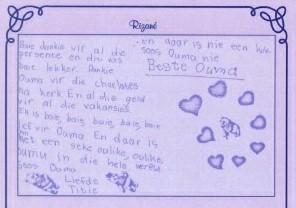 Rizané
Baie dankie vir al die
persente en dit was
baie lekker. Dankie
Ouma vir die charlottes
na kerk En al die geld
vir al die vakansies
En is baie, baie, baie, baie, baie
lief vir Ouma En daar is
net een seke oulike, oulike
oumu in die hele wereld
soos Ouma
Liefde
Tibie
en daar is nie een
soos Ouma nie
Beste Ouma